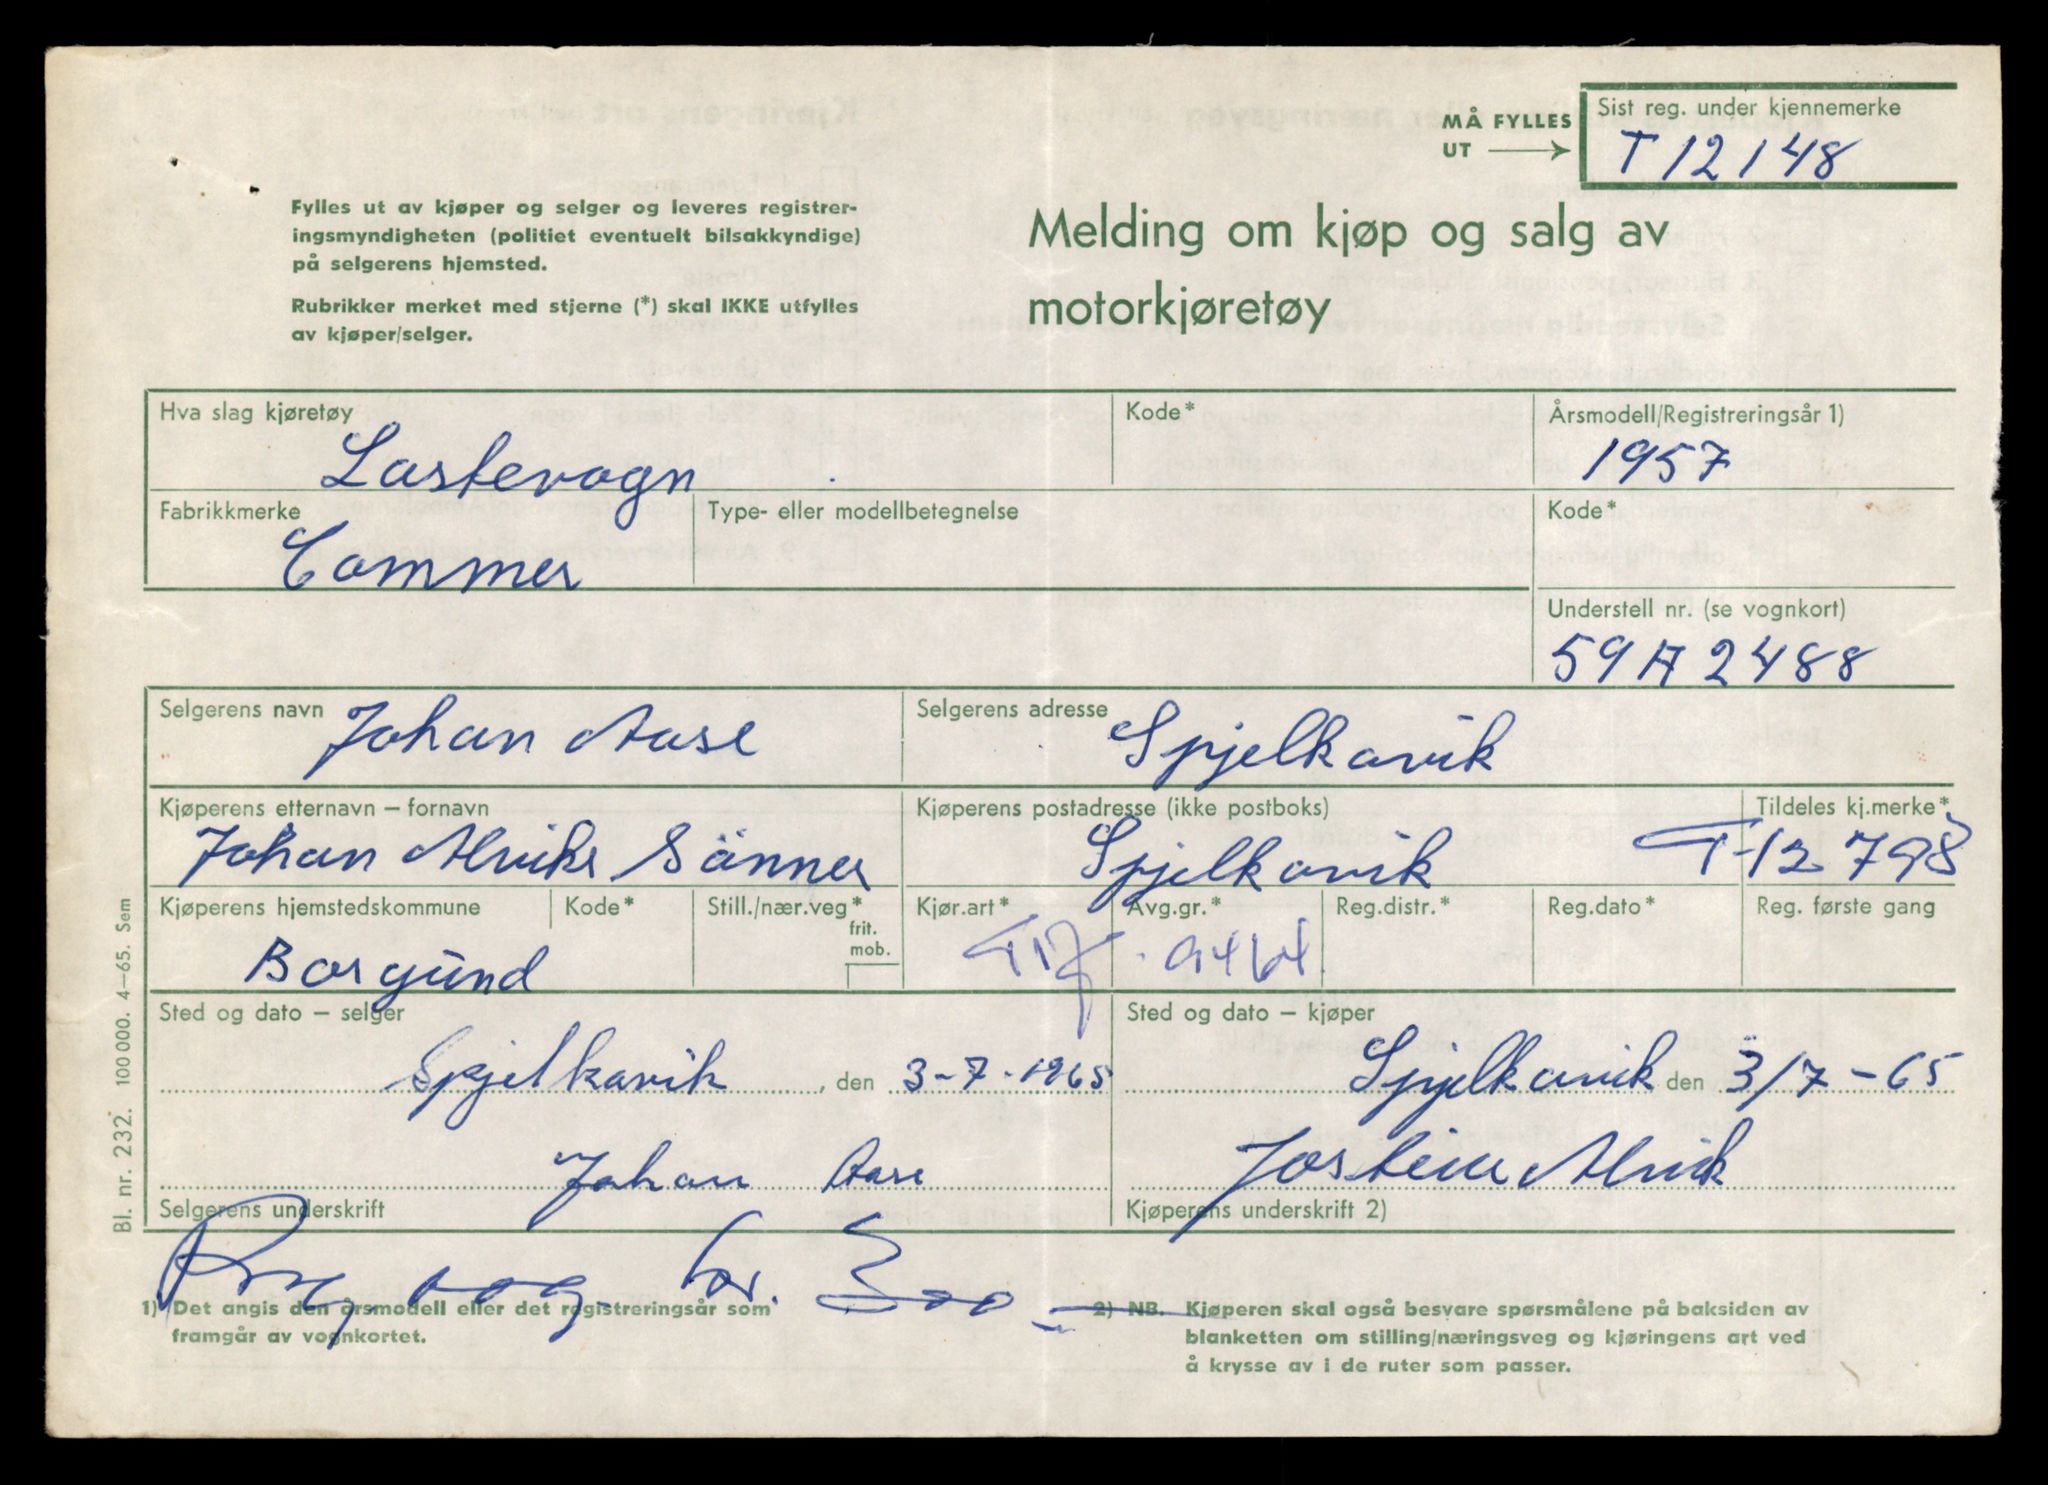 MÅ FYLLES UT
Sist reg. under kjennemerke
T 12148
Fylles ut av kjøper og selger og leveres registrer-
ingsmyndigheten (politiet eventuelt bilsakkyndige)
på selgerens hjemsted.
Rubrikker merket med stjerne (*) skal IKKE utfylles
av kjøper/selger.
Melding om kjøp og salg av
motorkjøretøy
Hva slag kjøretøy
Lastevogn
Kode*
Årsmodell/Registreringsår 1)
1957
Fabrikkmerke
Commer
Type- eller modellbetegnelse
Kode*
Understell nr. (se vognkort)
59A2488
Selgerens navn
Johan Aase
Selgerens adresse
Spjelkavik
Kjøperens etternavn – fornavn
Johan Alviks Sönner
Kjøperens postadresse (ikke postboks)
Spjelkavik
Tildeles kj.merke*
T-12798
Kjøperens hjemstedskommune
Borgund
Kode*
Still./nær.veg*
frit.
mob.
Kjør.art*
Avg.gr.*
Reg.distr.*
Reg.dato*
Reg. første gang
Sted og dato – selger
Spjelkavik, den 3-7-1965
Sted og dato – kjøper
Spjelkavik den 3/7-65
Johan Aase
Selgerens underskrift
Jostein Alvik
Kjøperens underskrift 2)
1) Det angis den årsmodell eller det registreringsår som
framgår av vognkortet.
2) NB. Kjøperen skal også besvare spørsmålene på baksiden av
blanketten om stilling/næringsveg og kjøringens art ved
å krysse av i de ruter som passer.
Bl. nr. 232. 100 000. 4–65. Sem